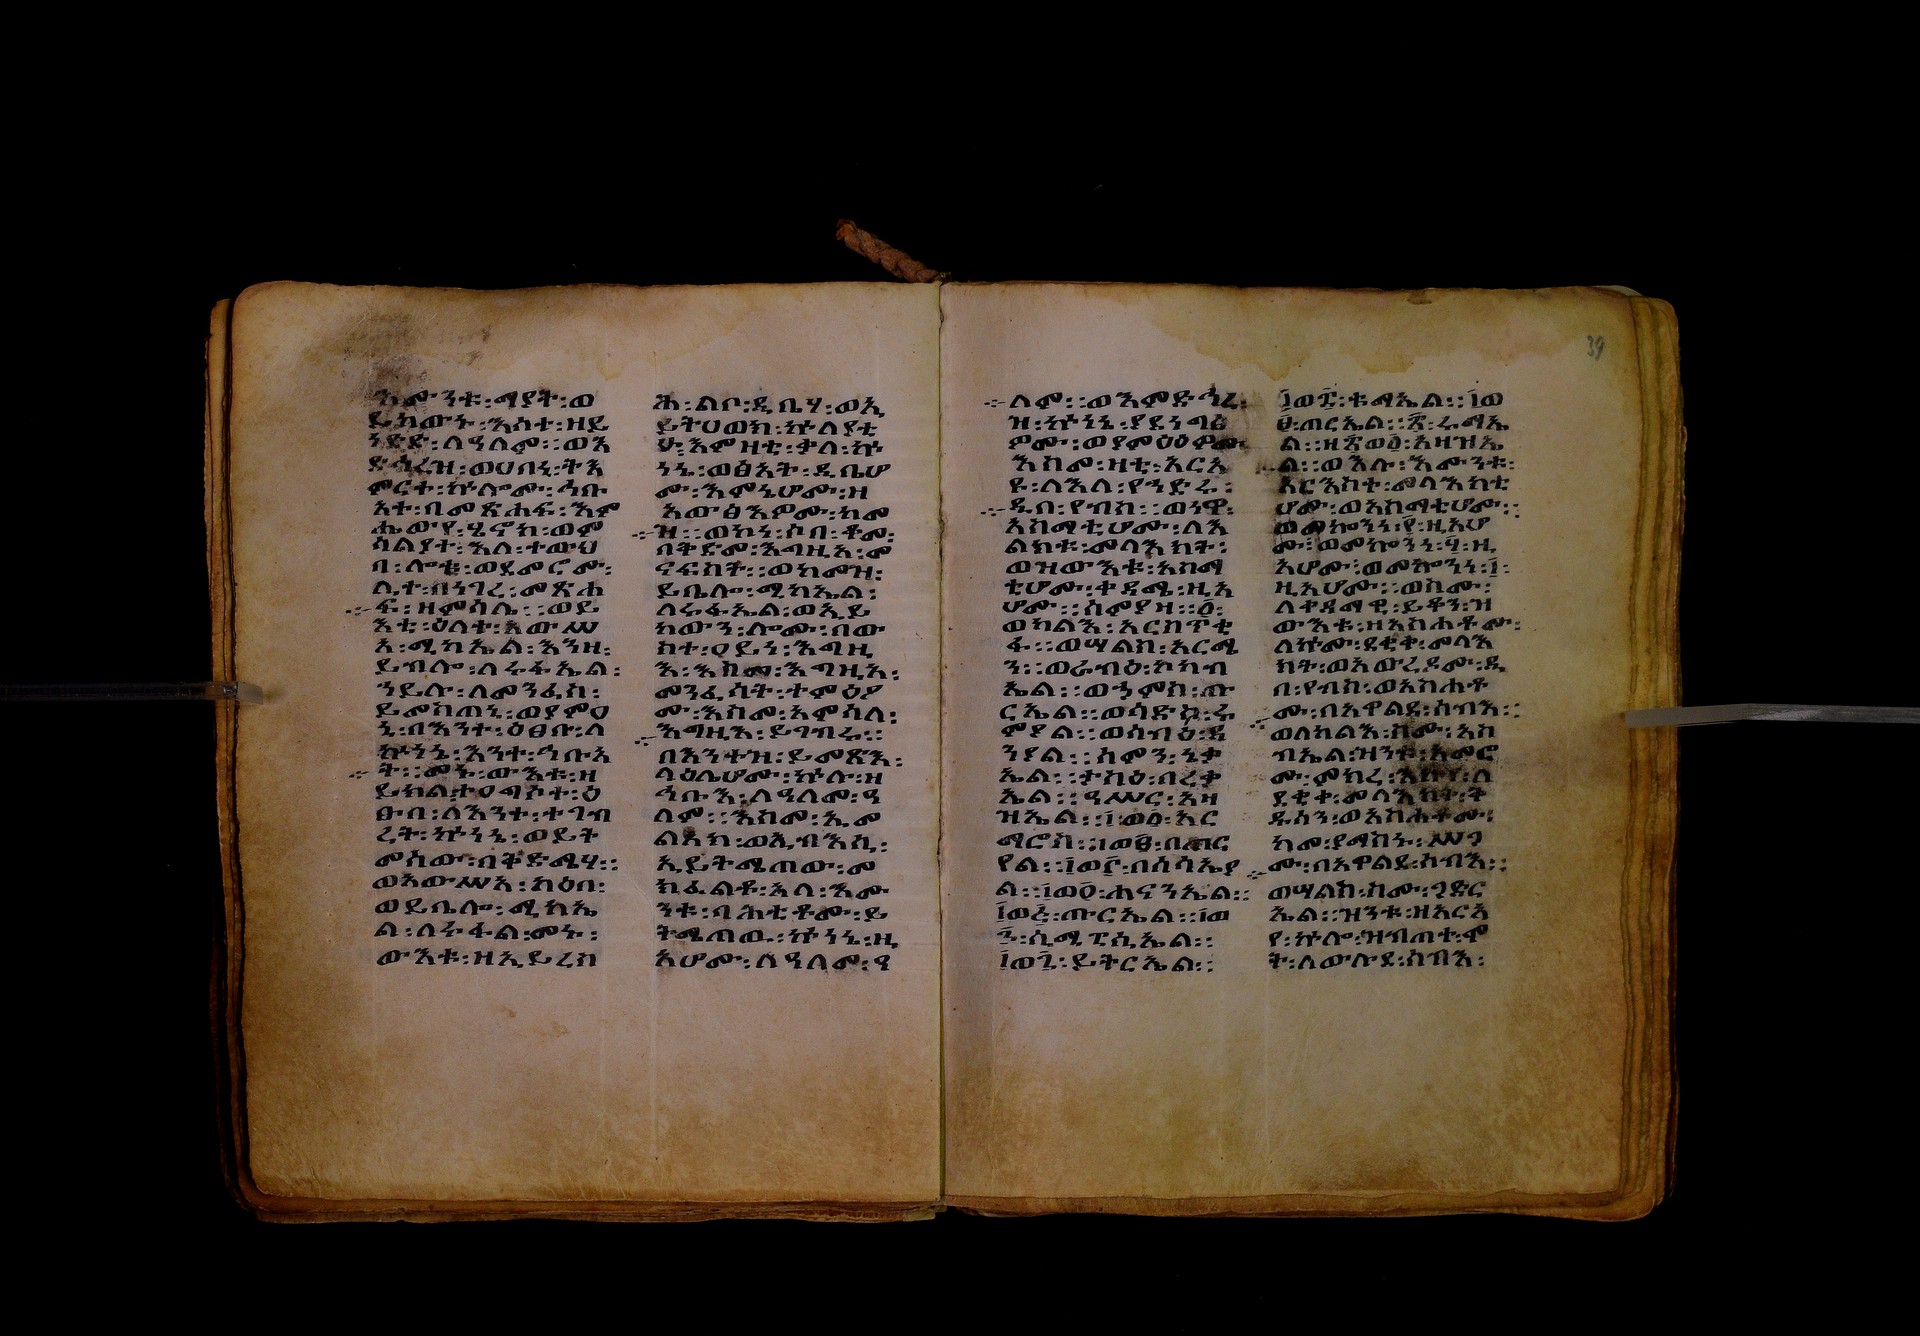 እሙንቱ፡ማያት፡ወ
ይከውኑ፡እሳተ፡ዘይ
ነድድ፡ለዓለም፡፡ወእ
ድኅረዝ፡ወሀበኒ፡ትእ
ምርተ፡ኵሎሙ፡ኅቡ
አተ፡በመጽሐፍ፡እም
ሔውየ፡ሄኖክ፡ወም
ሳልያተ፡እለ፡ተውህ
በ፡ሎቱ፡ወደመሮሙ፡
ሊተ፡በነገረ፡መጽሐ
ፍ፡ዘምሳሌ፡፡ወይ
እቲ፡ዕለተ፡አውሥ
አ፡ሚካኤል፡እንዘ፡
ይብሎ፡ለሩፋኤል፡
ኀይሉ፡ለመንፈስ፡
ይመስጠኒ፡ወያምዐ
ኒ፡በእንተ፡ዕፀቡ፡ለ
ኵነኔ፡እንተ፡ኅቡአ
ት፡፡መኑ፡ውእቱ፡ዘ
ይክል፡ተዐግሶተ፡ዕ
ፀብ፡ለእንተ፡ተገብ
ረት፡ኵነኔ፡ወይት
መሰው፡በቅድሜሃ፡፡
ወአውሥአ፡ካዕበ፡
ወይቤሎ፡ሚካኤ
ል፡ለሩፋል፡መኑ፡
ውእቱ፡ዘኢይረስ
ሕ፡ልቦ፡ዲቤሃ፡ወኢ
ይትሀወክ፡ኵለያቲ
ሁ፡እምዛቲ፡ቃለ፡ኵ
ነኔ፡ወፀአት፡ዲቤሆ
ሙ፡እምኔሆሙ፡ዘ
አውፅእዎሙ፡ከመ
ዝ፡፡ወኮነ፡ሶበ፡ቆመ፡
በቅድመ፡እግዚአ፡መ
ናፍስት፡፡ወከመዝ፡
ይቤሎ፡ሚካኤል፡
ለሩፋኤል፡ወኢይ
ከውን፡ሎሙ፡በው
ስተ፡ዐይነ፡እግዚ
እ፡እስመ፡እግዚአ፡
መንፈሳት፡ተምዕዖ
ሙ፡እስመ፡አምሳለ፡
እግዚእ፡ይገብሩ፡፡
በእንተዝ፡ይመጽእ፡
ላዕሌሆሙ፡ኵሉ፡ዘ
ኅቡእ፡ለዓለመ፡ዓ
ለም፡፡እስመ፡ኢመ
ልአክ፡ወኢብእሲ፡
ኢይትሜጠው፡መ
ክፈልቶ፡አላ፡እሙ
ንቱ፡ባሕቲቶሙ፡ይ
ትሜጠዉ፡ኵነኔ፡ዚ
አሆሙ፡ለዓለመ፡ዓ
ለም፡፡ወእምድኅረ፡
ዝ፡ኵነኔ፡ያደነግፅ
ዎሙ፡ወያምዕዕዎሙ
እስመ፡ዛቲ፡አርአ
ዩ፡ለእለ፡የኀድሩ፡
ዲበ፡የብስ፡፡ወነዋ፡
አስማቲሆሙ፡ለእ
ልክቱ፡መላእክት፡
ወዝውእቱ፡አስማ
ቲሆሙ፡ቀዳሜ፡ዚአ
ሆሙ፡፡ሰምያዛ፡፡፪፡
ወካልእ፡አርስጥቂ
ፋ፡፡ወሣልስ፡አርሜ
ን፡፡ወራብዕ፡ኮካብ
ኤል፡፡ወኃምስ፡ጡ
ርኤል፡፡ወሳድስ፡ሩ
ምያል፡፡ወሳብዕ፡ዳ
ንያል፡፡ስምን፡ኔቃ
ኤል፡፡ታስዕ፡በረቃ
ኤል፡፡ዓሥር፡አዛ
ዝኤል፡፡፲፡ወ፩፡አር
ማሮስ፡፡፲ወ፪፡በጠር
የል፡፡፲ወ፫፡በሰሳኤያ
ል፡፡፲ወ፬፡ሐናንኤል፡፡
፲ወ፭፡ጡርኤል፡፡፲ወ
፮፡ሲሜፒሲኤል፡፡
፲ወ፯፡ይትርኤል፡፡
፲ወ፰፡ቱማኤል፡፡፲ወ
፱፡ጠርኤል፡፡፳፡ሩማኤ
ል፡፡ዘ፳ወ፩፡አዛዝኤ
ል፡፡ወእሉ፡እሙንቱ፡
አርእስተ፡መላእክቲ
ሆሙ፡ወአስማቲሆሙ፡፡
ወመኰንነ፡፻፡ዚአሆ
ሙ፡ወመኰንነ፡፶፡ዚ
አሆሙ፡ወመኰንነ፡፲፡
ዚአሆሙ፡፡ወስሙ፡
ለቀዳማዊ፡ይቆን፡ዝ
ውእቱ፡ዘአስሐቶሙ፡
ለኵሙ፡ደቂቀ፡መላእ
ክት፡ወአውረዶሙ፡ዲ
በ፡የብስ፡ወአስሐቶ
ሙ፡በአዋልደ፡ሰብእ፡፡
ወለካልእ፡ስሙ፡አስ
ብኤል፡ዝንቱ፡አመሮ
ሙ፡ምክረ፡እኩየ፡ለ
ደቂቀ፡መላእክት፡ቅ
ዱሳን፡ወአስሐቶሙ፡
ከመ፡ያማስኑ፡ሥጋ
ሙ፡በአዋልደ፡ሰብእ፡፡
ወሣልስ፡ስሙ፡ጋድር
ኤል፡፡ዝንቱ፡ዘአርአ
የ፡ኵሎ፡ዝብጠተ፡ሞ
ት፡ለውሉደ፡ሰብእ፡